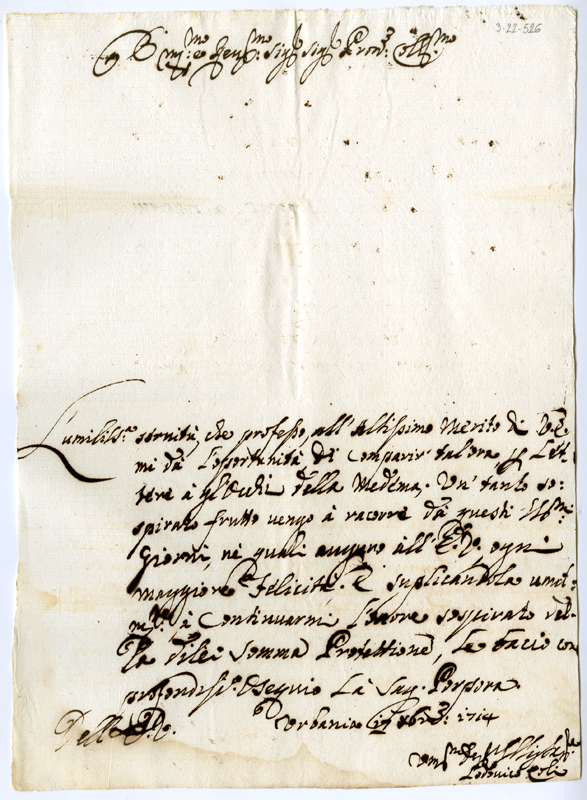 3-22-526
E.mo e Reu.mo Sig.r Sig.r Pron.e Coll.mo
L'umiliss.a seruitù, che professo all'Altissimo Merito di V. E.
mi dà l'opportunità, di comparir talora p Let-
tere à gl'Occhi della Medema. Un' tanto so-
spirato frutto vengo à racorre dà questi SS.mi
Giorni, nè quali auguro all'E. V. ogni
maggiore Felicità. E suplicandola umil-
m.te à Continuarmi l'onore sospirato del-
la di lei somma Protettione, Le bacio con
profondiss.o Ossequio La Sag. Porpora.
Dell' E. V.
Vrbania 17 Xbre 1714
Lodovico